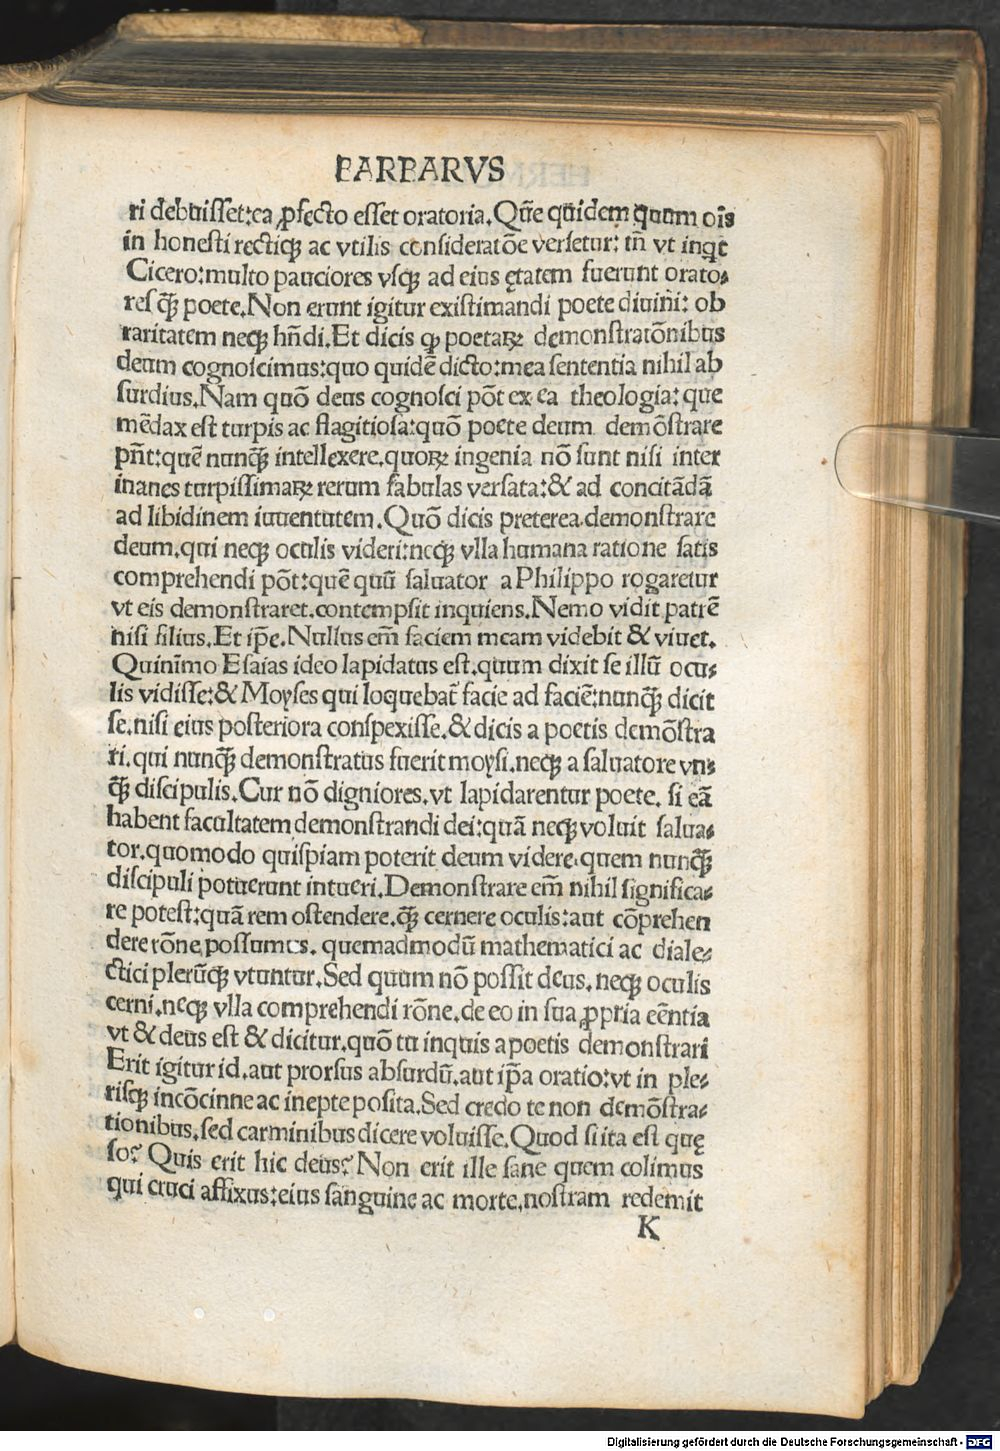 BARBARVS
ri debuisset:ea ꝓfecto esset oratoria.Qu̅e quidem quum oi̅s
in honesti rectiqꝫ ac vtilis considerato̅e versetur: tn̅ vt inqt
Cicero:multo pauciores vsqꝫ ad eius ętatem fuerunt orato⸗
res q̅ꝫ poete.Non erunt igitur existimandi poete diuini: ob
raritatem neqꝫ hn̅di.Et dicis ꝙ poetaꝝ demonstrato̅nibus
deum cognoscimus:quo quide̅ dicto:mea sententia nihil ab
surdius.Nam quo̅ deus cognosci po̅t ex ea theologia: que
me̅dax est turpis ac flagitiosa:quo̅ poete deum demo̅strare
pn̅t:que̅ nunq̅ꝫ intellexere.quoꝝ ingenia no̅ sunt nisi inter
inanes turpissimaꝝ rerum fabulas versata:& ad concita̅da̅
ad libidinem iuuentutem.Quo̅ dicis preterea.demonstrare
deum.qui neqꝫ oculis videri:neqꝫ vlla humana ratione satis
comprehendi po̅t:que̅ quu̅ saluator a Philippo rogaretur
vt eis demonstraret.contempsit inquiens.Nemo vidit patre̅
nisi filius.Et ip̅e.Nullus em̅ faciem meam videbit & viuet.
Quini̅mo Esaias ideo lapidatus est.quum dixit se illu̅ ocu⸗
lis vidisse:& Moyses qui loquebat̅ facie ad facie̅:nunq̅ꝫ dicit
se.nisi eius posteriora conspexisse.& dicis a poetis demo̅stra
ri.qui nunq̅ꝫ demonstratus fuerit moysi.neqꝫ a saluatore vn⸗
q̅ꝫ discipulis.Cur no̅ digniores.vt lapidarentur poete. si ea̅
habent facultatem demonstrandi dei:qua̅ neqꝫ voluit salua⸗
tor.quomodo quispiam poterit deum videre.quem nunq̅ꝫ
discipuli potuerunt intueri.Demonstrare em̅ nihil significa⸗
re potest:qua̅ rem ostendere.q̅ꝫ cernere oculis:aut co̅prehen
dere ro̅ne possumus. quemadmodu̅ mathematici ac diale⸗
ctici pleru̅qꝫ vtuntur.Sed quum no̅ possit deus.neqꝫ oculis
cerni.neqꝫ vlla comprehendi ro̅ne.de eo in sua ꝓpria ee̅ntia
vt & deus est & dicitur.quo̅ tu inquis a poetis demonstrari
Erit igitur id.aut prorsus absurdu̅.aut ip̅a oratio:vt in ple⸗
risqꝫ inco̅cinne ac inepte posita.Sed credo te non demo̅stra⸗
tionibus.sed carminibus dicere voluisse.Quod si ita est quę
so? Quis erit hic deus? Non erit ille sane quem colimus
qui cruci affixus:eius sanguine ac morte.nostram redemit
K
Digitalisierung gefördert durch die Deutsche Forschungsgemeinschaft - DFG